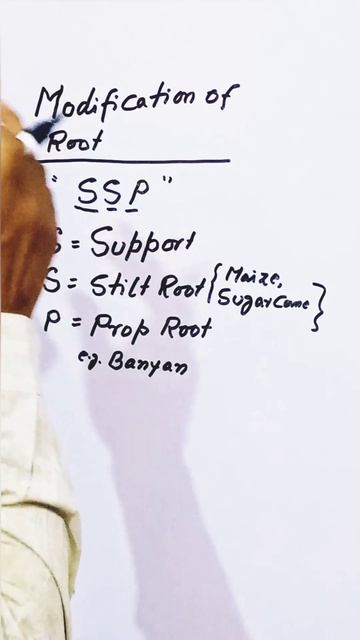 Modification of
Root
" SSP "
S = Support
S = Stilt Root { Maize,
Sugarcane }
P = Prop Root
e.g. Banyan